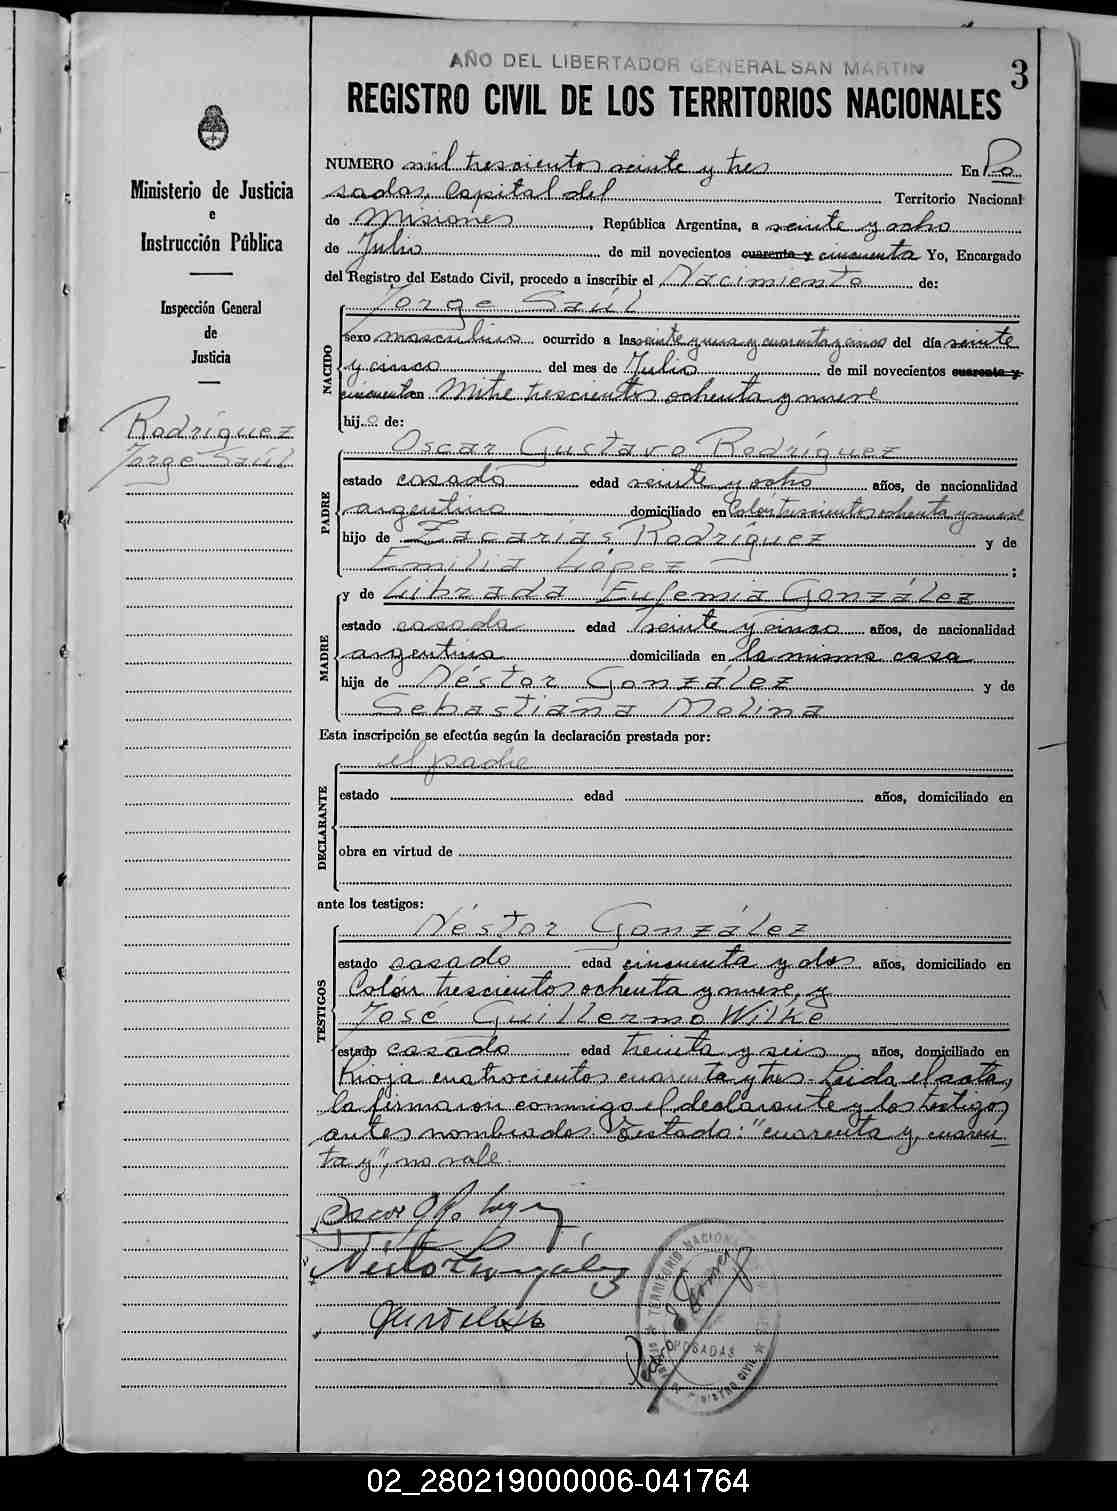 AÑO DEL LIBERTADOR GENERAL SAN MARTIN
3
REGISTRO CIVIL DE LOS TERRITORIOS NACIONALES
Ministerio de Justicia
e
Instrucción Pública
Inspección General
de
Justicia
Rodríguez
Jorge Saúl
NUMERO mil trescientos veinte y tres En Po
sadas, Capital del Territorio Nacional
de Misiones, República Argentina, a veinte y ocho
de Julio de mil novecientos cuarenta y cincuenta Yo, Encargado
del Registro del Estado Civil, procedo a inscribir el Nacimiento de:
NACIDO
Jorge Saúl
sexo masculino ocurrido a las veinte y una y cuarenta y cinco del día veinte
y cinco del mes de Julio de mil novecientos cuarenta y
cincuenta en Mitre trescientos ochenta y nueve
hijo de:
PADRE
Oscar Gustavo Rodríguez
estado casado edad veinte y ocho años, de nacionalidad
argentino domiciliado en Colón trescientos ochenta y nueve
hijo de Zacarías Rodríguez y de
Emilia López ;
MADRE
y de Librada Eufemia González
estado casada edad veinte y cinco años, de nacionalidad
argentina domiciliada en la misma casa
hija de Néstor González y de
Sebastiana Molina
Esta inscripción se efectúa según la declaración prestada por:
DECLARANTE
el padre
estado edad años, domiciliado en
obra en virtud de
ante los testigos:
TESTIGOS
Néstor González
estado casado edad cincuenta y dos años, domiciliado en
Colón trescientos ochenta y nueve, y
José Guillermo Wilke
estado casado edad treinta y seis años, domiciliado en
Rioja cuatrocientos cuarenta y tres. Leida el acta,
la firmaron conmigo el declarante y los testigos
antes nombrados. Testado: "cuarenta y, cuaren-
ta y", no vale.
Néstor González
TERRITORIO NACIONAL
POSADAS
REGISTRO CIVIL
Pedro
02_280219000006-041764